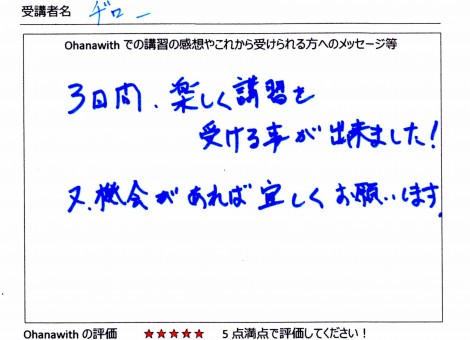 受講者名 ヂロー
Ohanawith での講習の感想やこれから受けられる方へのメッセージ等
3日間、楽しく講習を
受ける事が出来ました!
又、機会があれば宜しくお願いします。
Ohanawith の評価 ★★★★★ 5点満点で評価してください!